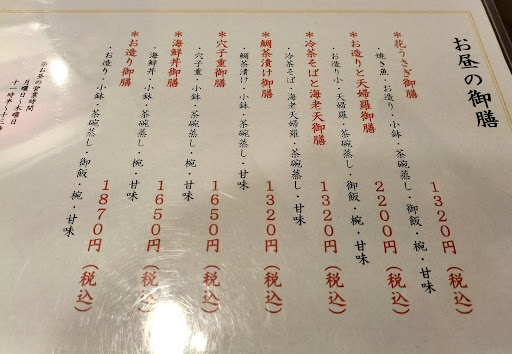 お昼の御膳
*花うさぎ御膳
・焼き魚・お造り・小鉢・茶碗蒸し・御飯・椀・甘味
1320円(税込)
*お造りと天婦羅御膳
・お造り小・天婦羅・茶碗蒸し・御飯・椀・甘味
2200円(税込)
*冷茶そばと海老天御膳
・冷茶そば・海老天婦羅・茶碗蒸し・甘味
1320円(税込)
*鯛茶漬け御膳
・鯛茶漬け・小鉢・茶碗蒸し・甘味
1320円(税込)
*穴子重御膳
・穴子重・小鉢・茶碗蒸し・椀・甘味
1650円(税込)
*海鮮丼御膳
・海鮮丼・小鉢・茶碗蒸し・椀・甘味
1650円(税込)
*お造り御膳
・お造り・小鉢・茶碗蒸し・御飯・椀・甘味
1870円(税込)
※お昼の営業時間
月曜日〜木曜日
十一時半〜十三時